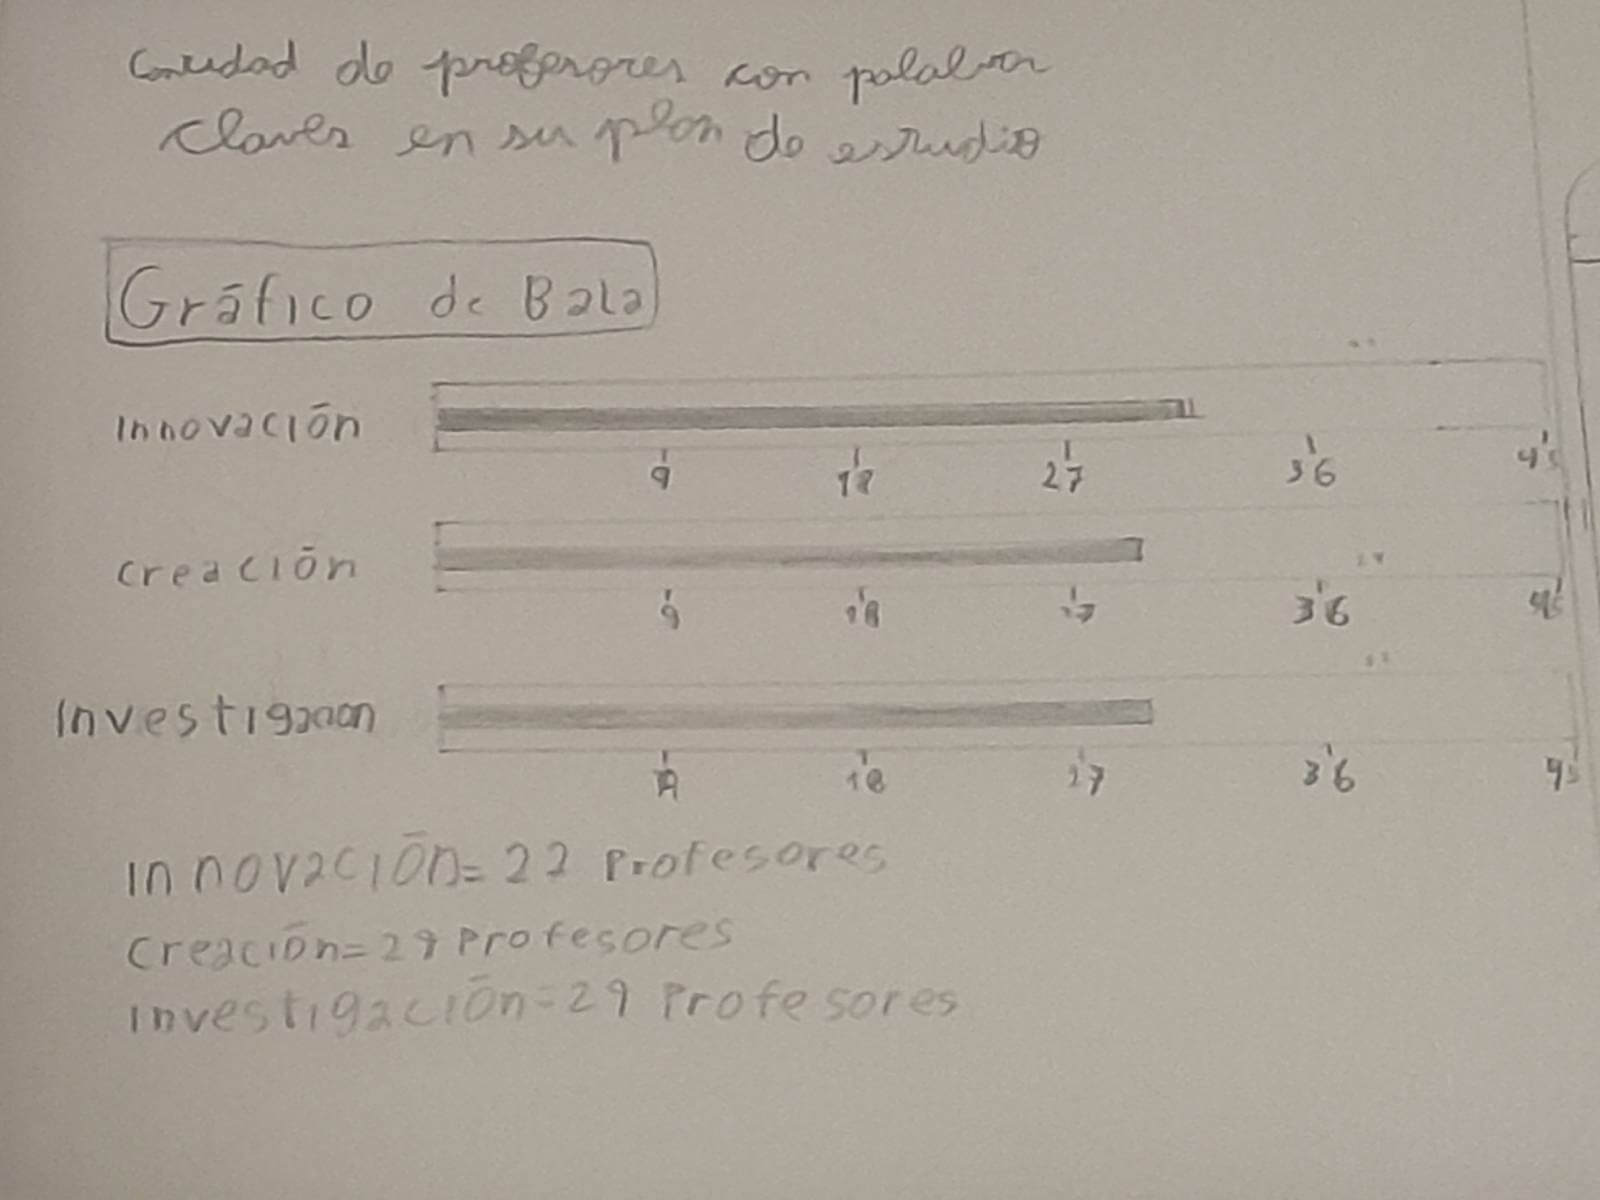 Cantidad de profesores con palabra
claves en su plan de estudio
Gráfico de Bala
Innovación
9 18 27 36 45
Creación
9 18 27 36 45
Investigación
9 18 27 36 45
Innovación= 22 Profesores
Creación= 29 Profesores
Investigación= 29 Profesores